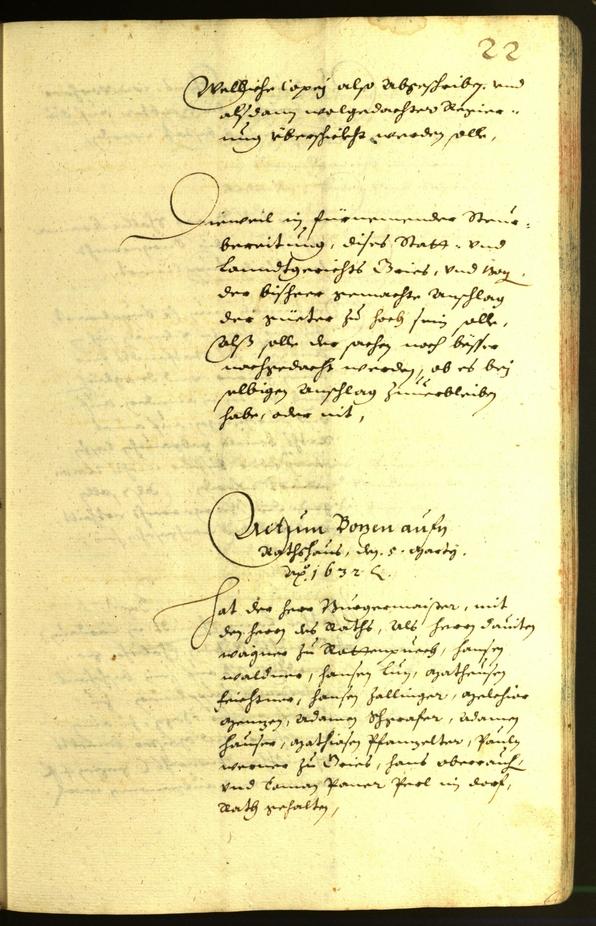 22
Wellliche Copey also Abgeschriben, und
alßdann wolgedachter Regier-
ung überschickht werden solle,
Dieweil in fürnemender Steur-
bereitung, dises Statt- und
Lanndtgerichts Gries, und
der bisheer gemachte Anschlag
der güeter zu hoch sein solle,
Alß solle der sachen noch besser
nachgedacht werden, ob es bei
selbigen Anschlag zuuerbleiben
habe, oder nit,
Actum Bozen aufm
Rathshaus, den 5. Marty.
Ao. 1632
Hat der herr Burgermaister, mit
den herrn des Raths, Als herrn Dauiten
Wagner zu Rottenpuech, Hansen
Waldner, Hansen Lun, Matheusen
Feichtner, Hansen Zallinger, Melchior
Menzen, Adamen Schgrafer, Adamen
Hauser, Mathiasen Pfanzelter, Pauln
Werner zu Gries, Hans Oberrauch,
und Toman im dorf,
Rath gehalten,